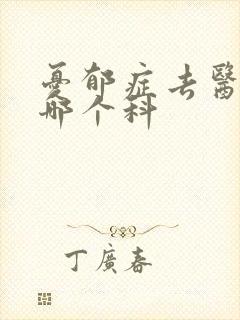 憂郁症去醫
哪个科
丁廣春